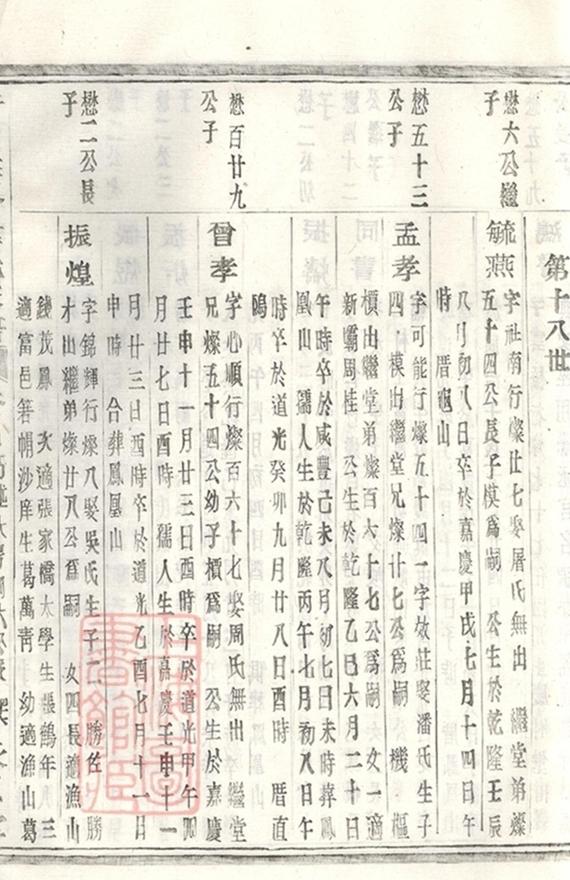 第十八世
懋六公繼
子
毓燕
字社南行燦廿七娶屠氏無出 繼堂弟燦
五十四公長子模爲嗣 公生於乾隆壬辰
八月初八日卒於嘉慶甲戌七月十四日午
時 厝龜山
懋五十三
公子
孟孝
字可能行燦五十四一字效莊娶潘氏生子
四 模出繼堂兄燦廿七公爲嗣 機 樞
櫝出繼堂弟燦百六十七公爲嗣 女一適
新壩周桂 公生於乾隆乙巳六月二十日
午時卒於咸豐己未八月初七日未時葬鳳
凰山 孺人生於乾隆丙午七月初八日午
時卒於道光癸卯九月廿八日酉時 厝直
隖
懋百廿九
公子
曾孝
字心順行燦百六十七娶周氏無出 繼堂
兄燦五十四公幼子櫝爲嗣 公生於嘉慶
壬申十一月廿三日酉時卒於道光甲午
月廿七日酉時 孺人生於嘉慶壬申十一
月廿三日酉時卒於道光乙酉七月十一日
申時 合葬鳳凰山
懋二公長
子
振煌
字錦輝行燦八娶吳氏生子二 勝佐 勝
才出繼弟燦廿八公爲嗣 女四長適漁山
錢茂鳳 次適張家橋大學生張鶴年 三
適富邑箬帽沙庠生葛萬靑 幼適漁山葛